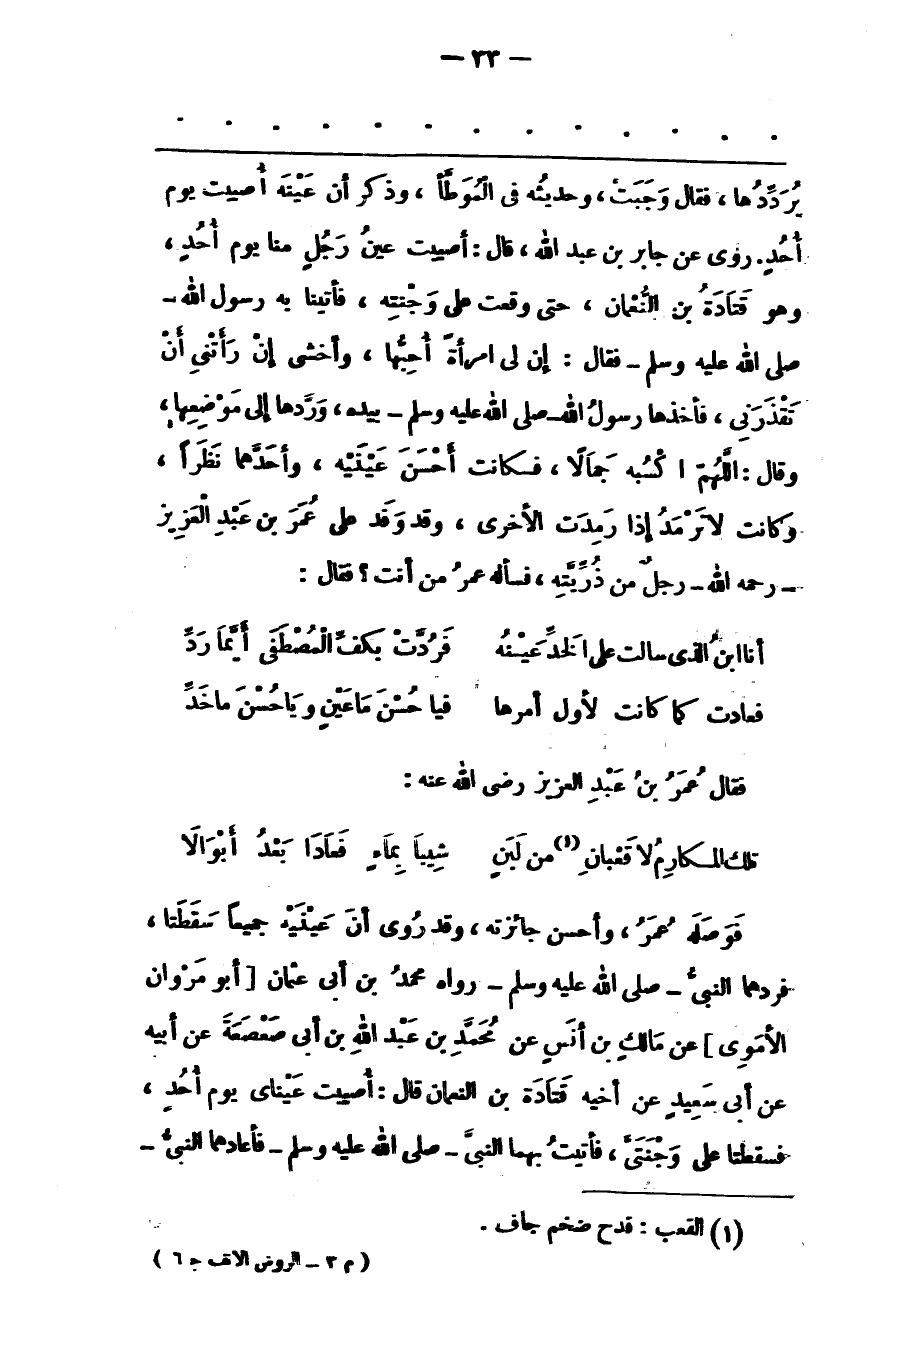 — ٣٣ —
يُرَدِّدُها ، فقال وَجَبَتْ ، وحديثُه فى الْمُوَطَّأ ، وذكر أن عَيْنَه أُصيبت يوم
أُحُدٍ. روى عن جابر بن عبد الله ، قال : أصيبت عينُ رَجُلٍ منا يوم أُحُدٍ ،
وهو قَتَادَةُ بن النُّعْمان ، حتى وقعت على وَجْنتِه ، فأتينا به رسول الله –
صلى الله عليه وسلم – فقال : إن لى امرأةً أُحِبُّها ، وأخشى إنْ رَأَتْنِي أنْ
تَقْذَرَنِى ، فأخذها رسولُ الله – صلى الله عليه وسلم – بيده ، وَرَّدها إلى مَوْضِعِها ،
وقال : اللَّهُمّ ا كْسُبه جَمَالًا ، فكانت أَحْسَنَ عَيْنَيْه ، وأحَدَّهما نَظَراً ،
وكانت لا تَرْمَدُ إذا رَمِدَت الأخرى ، وقد وَفَد على عُمَرَ بن عَبْدِ الْعَزِيز
– رحمه الله – رجلٌ من ذُرِّيَّتِه ، فسأله عمرُ من أنت ؟ فقال :
أنا ابنُ الذى سالت على الَخدِّ عَيْنُه    فَرُدَّتْ بكفِّ الْمُصْطَفَى أَيَّمَا رَدِّ
فعادت كما كانت لأول أمرها    فيا حُسْنَ مَاعَيْنٍ ويَاحُسْنَ ماخَدِّ
فقال عُمَرُ بنُ عَبْدِ العزيز رضى الله عنه :
تلك المكارِمُ لا قَعْبانِ(١) من لَبَنٍ    شِيبَا بِمَاءٍ فَعَادَا بَعْدُ أَبْوَالَا
فَوَصَلَه عُمَرُ ، وأحسن جائزته ، وقد رُوى أنَ عَيْنَيْه جميعاً سَقَطَتا ،
فردهما النبىُّ – صلى الله عليه وسلم – رواه محمدُ بن أبى عثمان [ أبو مَرْوان
الأمَوِى ] عن مَالكِ بن أنَسٍ عن مُحَمَّدِ بن عَبْد اللهِ بن أبى صَعْصَعَةَ عن أبيه
عن أبى سَعِيدٍ عن أخيه قَتَادَة بن النعمان قال : أُصيبت عَيْناى يوم أُحُدٍ ،
فسقطتا على وَجْنَتَىَّ ، فأتيتُ بهما النبىَّ – صلى الله عليه وسلم – فأعادهما النبىُّ –
(١) القعب : قدح ضخم جاف .
( م ٣ – الروض الانف ج ٦ )